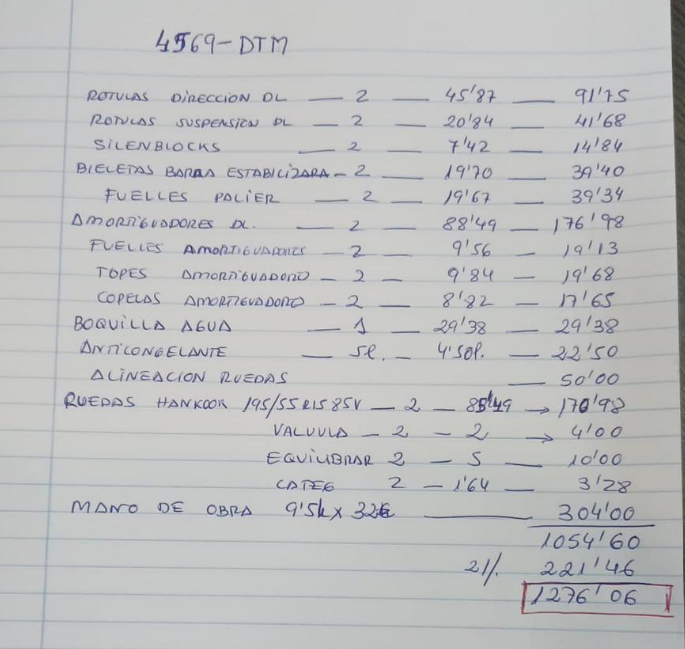 4569-DTM
ROTULAS DIRECCION DL — 2 — 45'87 — 91'75
ROTULAS SUSPENSION DL — 2 — 20'84 — 41'68
SILENBLOCKS — 2 — 7'42 — 14'84
BIELETAS BARRA ESTABILIZARA - 2 — 19'70 — 39'40
FUELLES PALIER — 2 — 19'67 — 39'34
AMORTIGUADORES DL. — 2 — 88'49 — 176'98
FUELLES AMORTIGUADORES — 2 — 9'56 — 19'13
TOPES AMORTIGUADORO — 2 — 9'84 — 19'68
COPELAS AMORTIGUADORO — 2 — 8'82 — 17'65
BOQUILLA AGUA — 1 — 29'38 — 29'38
ANTICONGELANTE — 5l. — 4'50l. — 22'50
ALINEACION RUEDAS — 50'00
RUEDAS HANKOOK 195/55 R15 85V — 2 — 85'49 → 170'98
VALVULA — 2 — 2 → 4'00
EQUILIBRAR 2 — 5 — 10'00
CATEG 2 — 1'64 — 3'28
MANO DE OBRA 9'5h x 32€ — 304'00
1054'60
21%. 221'46
1276'06